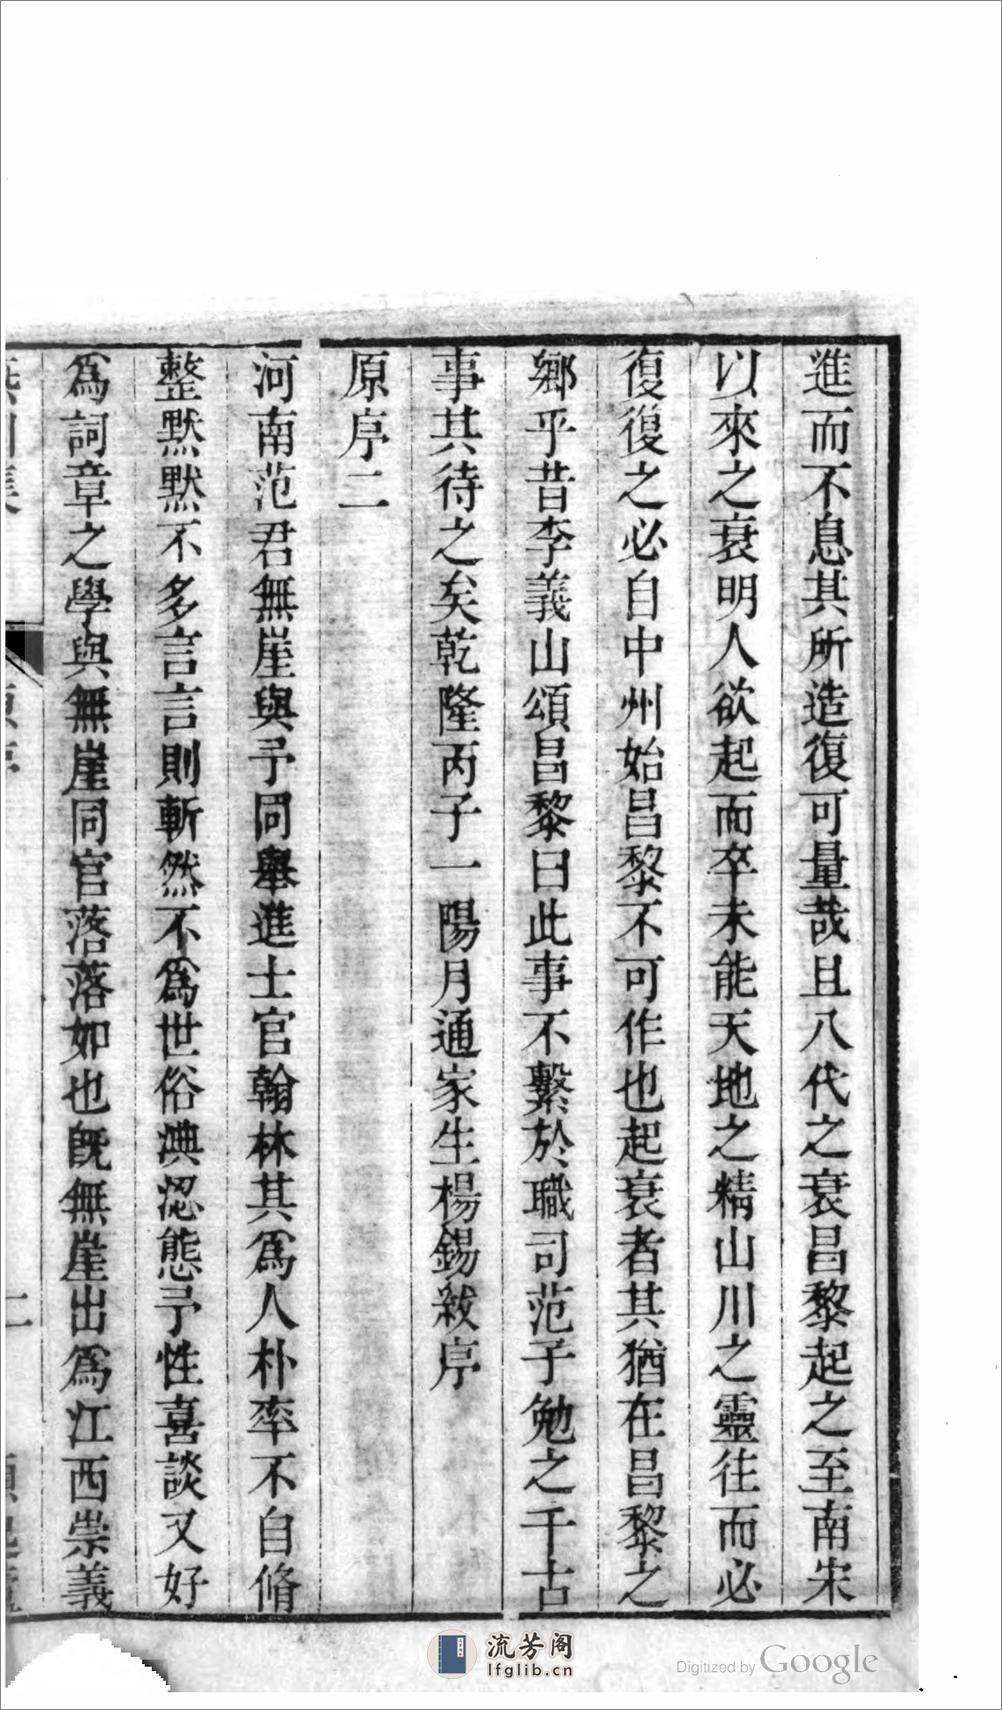 進而不息其所造復可量哉且八代之衰昌黎起之至南宋
以來之衰明人欲起而卒未能天地之精山川之靈往而必
復復之必自中州始昌黎不可作也起衰者其猶在昌黎之
鄉乎昔李義山頌昌黎曰此事不繫於職司范子勉之千古
事其待之矣乾隆丙子一陽月通家生楊錫紱序
原序二
河南范君無崖與予同舉進士官翰林其爲人朴率不自脩
整默默不多言言則斬然不爲世俗淟涊態予性喜談又好
爲詞章之學與無崖同官落落如也旣無崖出爲江西崇義
原序
二
流芳阁
lfglib.cn
Digitized by Google